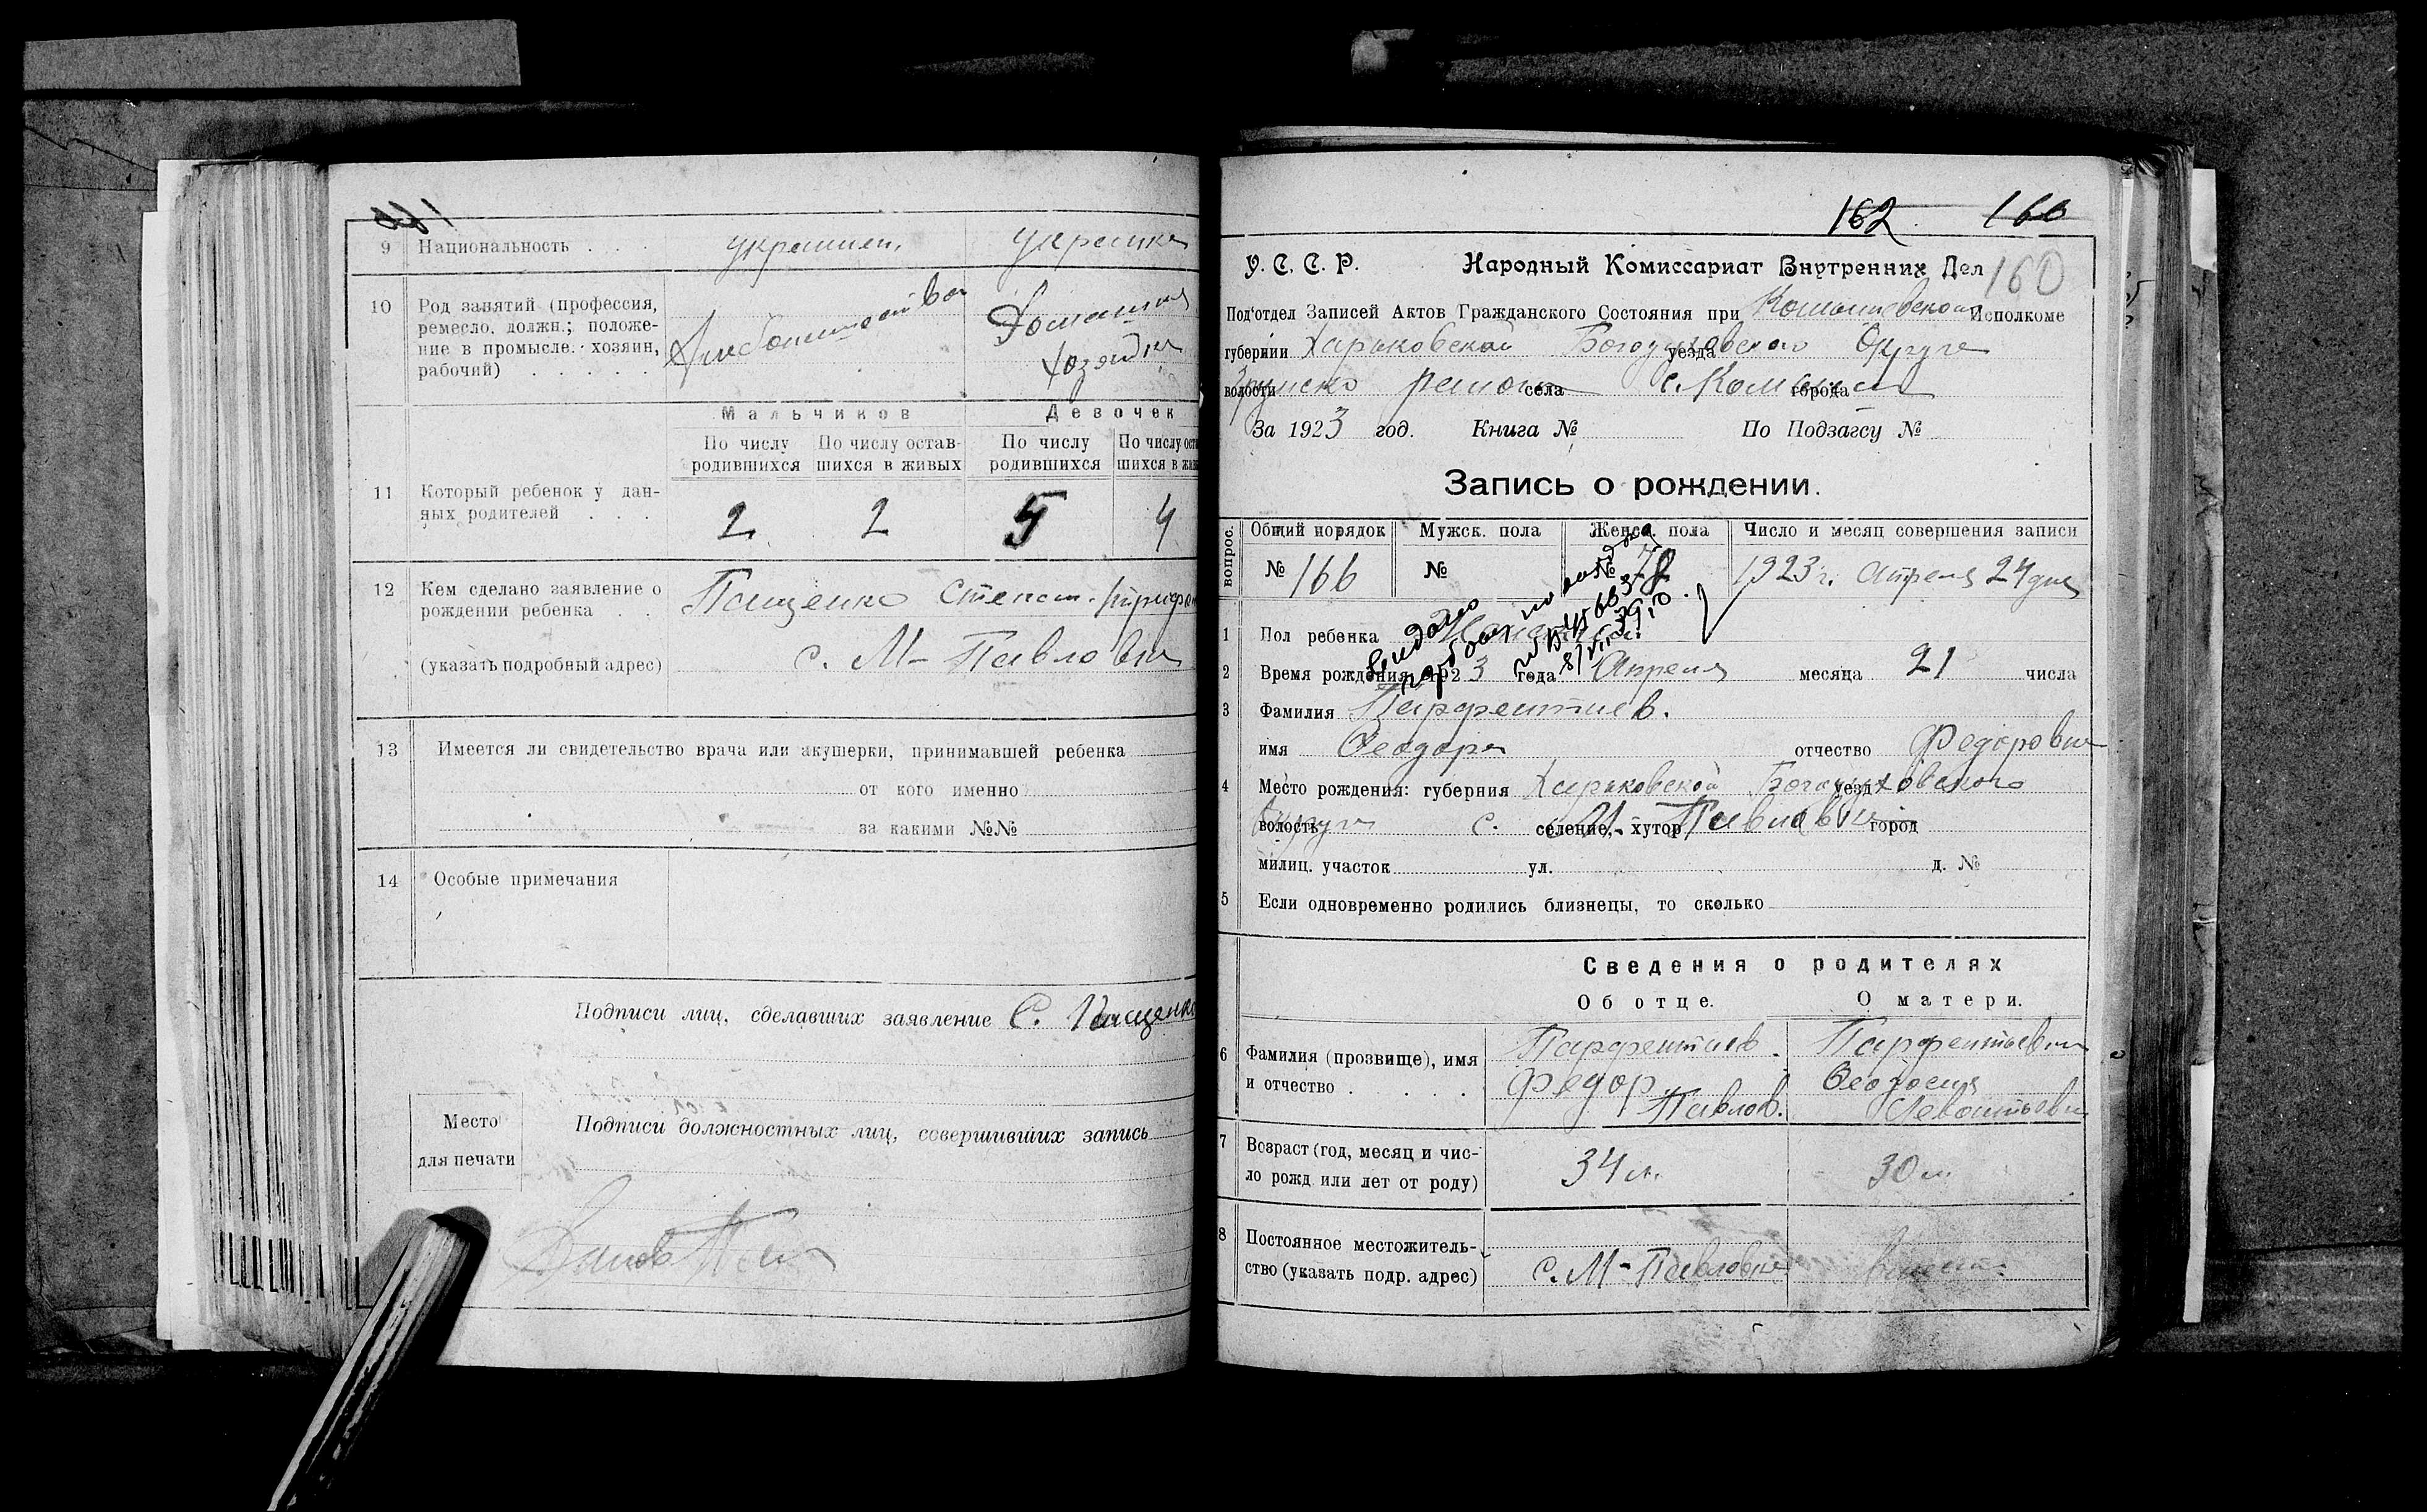 160
9 Национальность . . . украинец украинка
10 Род занятий (профессия, ремесло, должн.; положение в промысле: хозяин, рабочий) . . . . .
Хлебопашество
Домашняя
хозяйка
Мальчиков Девочек
По числу родившихся По числу оставшихся в живых По числу родившихся По числу оставшихся в жив
11 Который ребенок у данных родителей . . .
2 2 5 4
12 Кем сделано заявление о рождении ребенка . .
Пащенко Степан
(указать подробный адрес) с. М-Павловка
13 Имеется ли свидетельство врача или акушерки, принимавшей ребенка
от кого именно
за какими №№
14 Особые примечания
Подписи лиц, сделавших заявление С. Пащенко
Место
для печати
Подписи должностных лиц, совершивших запись
162 160
У. С. С. Р. Народный Комиссариат Внутренних Дел 160
Под'отдел Записей Актов Гражданского Состояния при Исполкоме
губернии Харьковской Богодуховского уезда Округа
волости района села с. города
За 1923 год. Книга № По Подзагсу №
Запись о рождении.
вопрос. Общий порядок Мужск. пола Женск. пола Число и месяц совершения записи
№ 166 № № 78 1923 г. Апреля 24 дня
1 Пол ребенка
Выдано
2 Время рождения 1923 года Апреля месяца 21 числа
3 Фамилия Парфентиев.
имя Феодора отчество Федоровна
4 Место рождения: губерния Харьковской Богодуховского уезд
волость Округа с. селение, хутор М-Павловка город
милиц. участок ул. д. №
5 Если одновременно родились близнецы, то сколько
Сведения о родителях
Об отце. О матери.
6 Фамилия (прозвище), имя и отчество . . . .
Парфентиев. Федор Павлов.
Парфентьевна Феодосия Леонтьевна
7 Возраст (год, месяц и число рожд или лет от роду)
34 л. 30 л.
8 Постоянное местожительство (указать подр. адрес)
с. М-Павловка вместе.